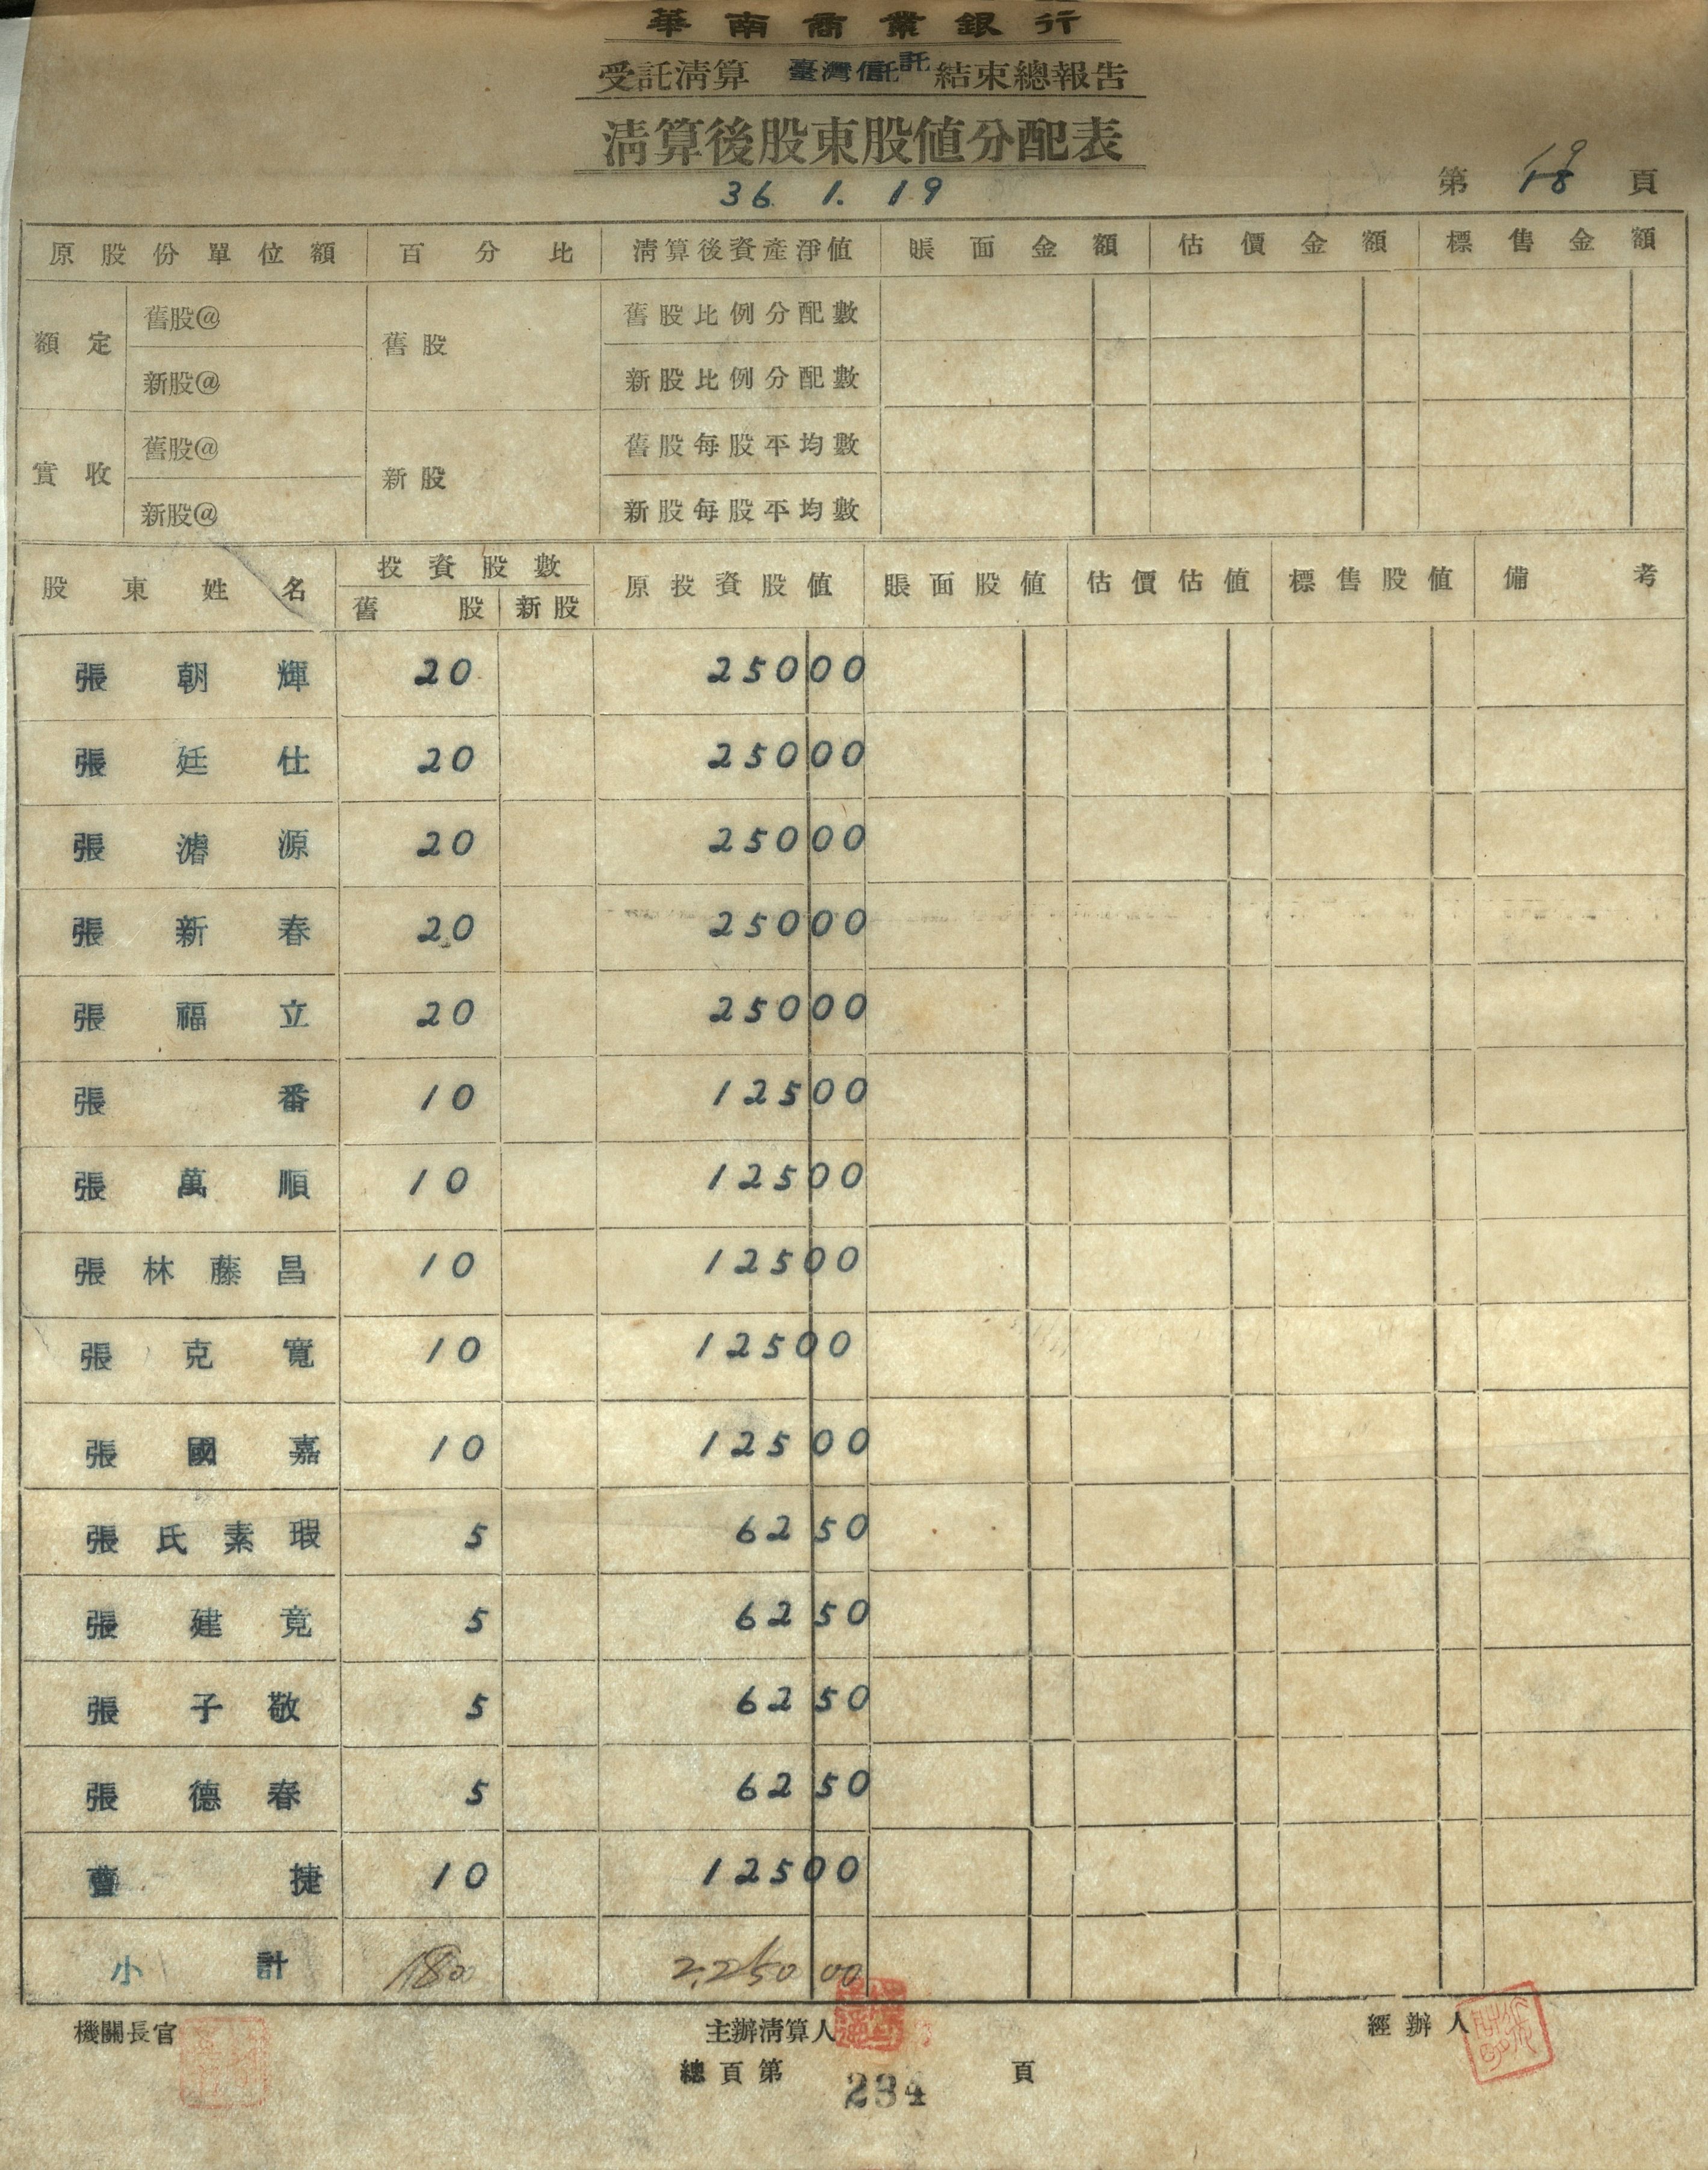 華南商業銀行
受託清算 臺灣信託 結束總報告
清算後股東股值分配表
36. 1. 19
第 19 頁
原股份單位額 百分比 清算後資產淨值 賬面金額 估價金額 標售金額
額定 舊股@ 舊股 舊股比例分配數
新股@ 新股比例分配數
實收 舊股@ 新股 舊股每股平均數
新股@ 新股每股平均數
股東姓名 投資股數 原投資股值 賬面股值 估價估值 標售股值 備考
舊股 新股
張朝輝 20 25000
張廷仕 20 25000
張濬源 20 25000
張新春 20 25000
張福立 20 25000
張番 10 12500
張萬順 10 12500
張林藤昌 10 12500
張克寬 10 12500
張國嘉 10 12500
張氏素瑕 5 6250
張建竟 5 6250
張子敬 5 6250
張德春 5 6250
曹捷 10 12500
小計 180 2,25000
機關長官 主辦清算人 經辦人
總頁第 234 頁